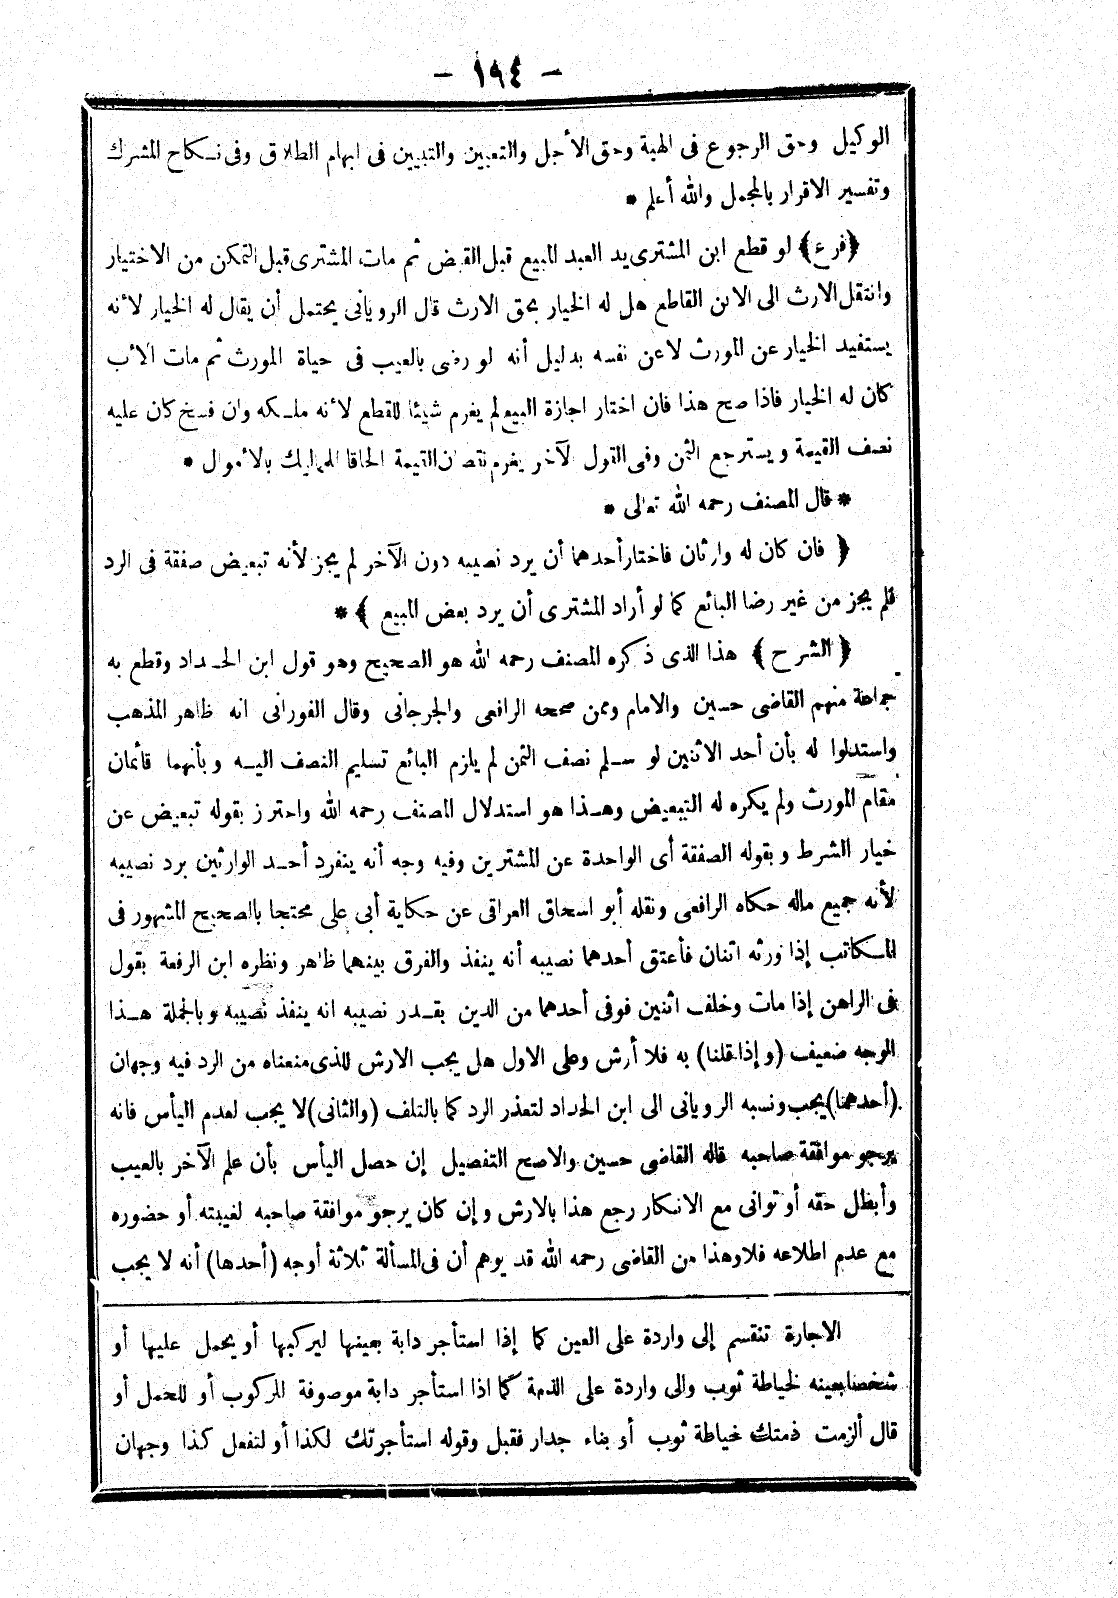 - ١٩٤ -
الوكيل وحق الرجوع فى الهبة وحق الأجل والتعيين والتبيين فى ابهام الطلاق وفى نكاح المشرك
وتفسير الاقرار بالمجمل والله أعلم *
﴿فرع﴾ لو قطع ابن المشترى يد العبد المبيع قبل القبض ثم مات المشترى قبل التمكن من الاختيار
وانتقل الارث الى الابن القاطع هل له الخيار بحق الارث قال الرويانى يحتمل أن يقال له الخيار لأنه
يستفيد الخيار عن المورث لا عن نفسه بدليل أنه لو رضى بالعيب فى حياة المورث ثم مات الأب
كان له الخيار فاذا صح هذا فان اختار اجازة البيع لم يغرم شيئا للقطع لأنه ملكه وان فسخ كان عليه
نصف القيمة ويسترجع الثمن وفى القول الآخر يغرم نقصان القيمة الحاقا للمماليك بالأموال *
* قال المصنف رحمه الله تعالى *
﴿ فان كان له وارثان فاختار أحدهما أن يرد نصيبه دون الآخر لم يجز لأنه تبعيض صفقة فى الرد
فلم يجز من غير رضا البائع كما لو أراد المشترى أن يرد بعض المبيع ﴾ *
﴿ الشرح ﴾ هذا الذى ذكره المصنف رحمه الله هو الصحيح وهو قول ابن الحداد وقطع به
جماعة منهم القاضى حسين والامام وممن صححه الرافعى والجرجانى وقال الفورانى انه ظاهر المذهب
واستدلوا له بأن أحد الاثنين لو سلم نصف الثمن لم يلزم البائع تسليم النصف اليه وبأنهما قائمان
مقام المورث ولم يكره له التبعيض وهذا هو استدلال المصنف رحمه الله واحترز بقوله تبعيض عن
خيار الشرط وبقوله الصفقة أى الواحدة عن المشترين وفيه وجه أنه ينفرد أحد الوارثين برد نصيبه
لأنه جميع ماله حكاه الرافعى ونقله أبو اسحاق العراقى عن حكاية أبى على محتجا بالصحيح المشهور فى
المكاتب إذا ورثه اثنان فأعتق أحدهما نصيبه أنه ينفذ والفرق بينهما ظاهر ونظره ابن الرفعة بقول
فى الراهن إذا مات وخلف اثنين فوفى أحدهما من الدين بقدر نصيبه انه ينفذ نصيبه وبالجملة هذا
الوجه ضعيف (وإذا قلنا) به فلا أرش وعلى الاول هل يجب الارش للذى منعناه من الرد فيه وجهان
(أحدهما) يجب ونسبه الرويانى الى ابن الحداد لتعذر الرد كما بالتلف (والثانى) لا يجب لعدم اليأس فانه
يرجو موافقة صاحبه قاله القاضى حسين والاصح التفصيل إن حصل اليأس بأن علم الآخر بالعيب
وأبطل حقه أو توانى مع الامكار رجع هذا بالارش وإن كان يرجو موافقة صاحبه لغيبته أو حضوره
مع عدم اطلاعه فلا وهذا من القاضى رحمه الله قد يوهم أن فى المسألة ثلاثة أوجه (أحدها) أنه لا يجب
الاجارة تنقسم إلى واردة على العين كما إذا استأجر دابة بعينها ليركبها أو يحمل عليها أو
شخصا بعينه لخياطة ثوب والى واردة على الذمة كما اذا استأجر دابة موصوفة للركوب أو للحمل أو
قال ألزمت ذمتك خياطة ثوب أو بناء جدار فقبل وقوله استأجرتك لكذا أو لتفعل كذا وجهان